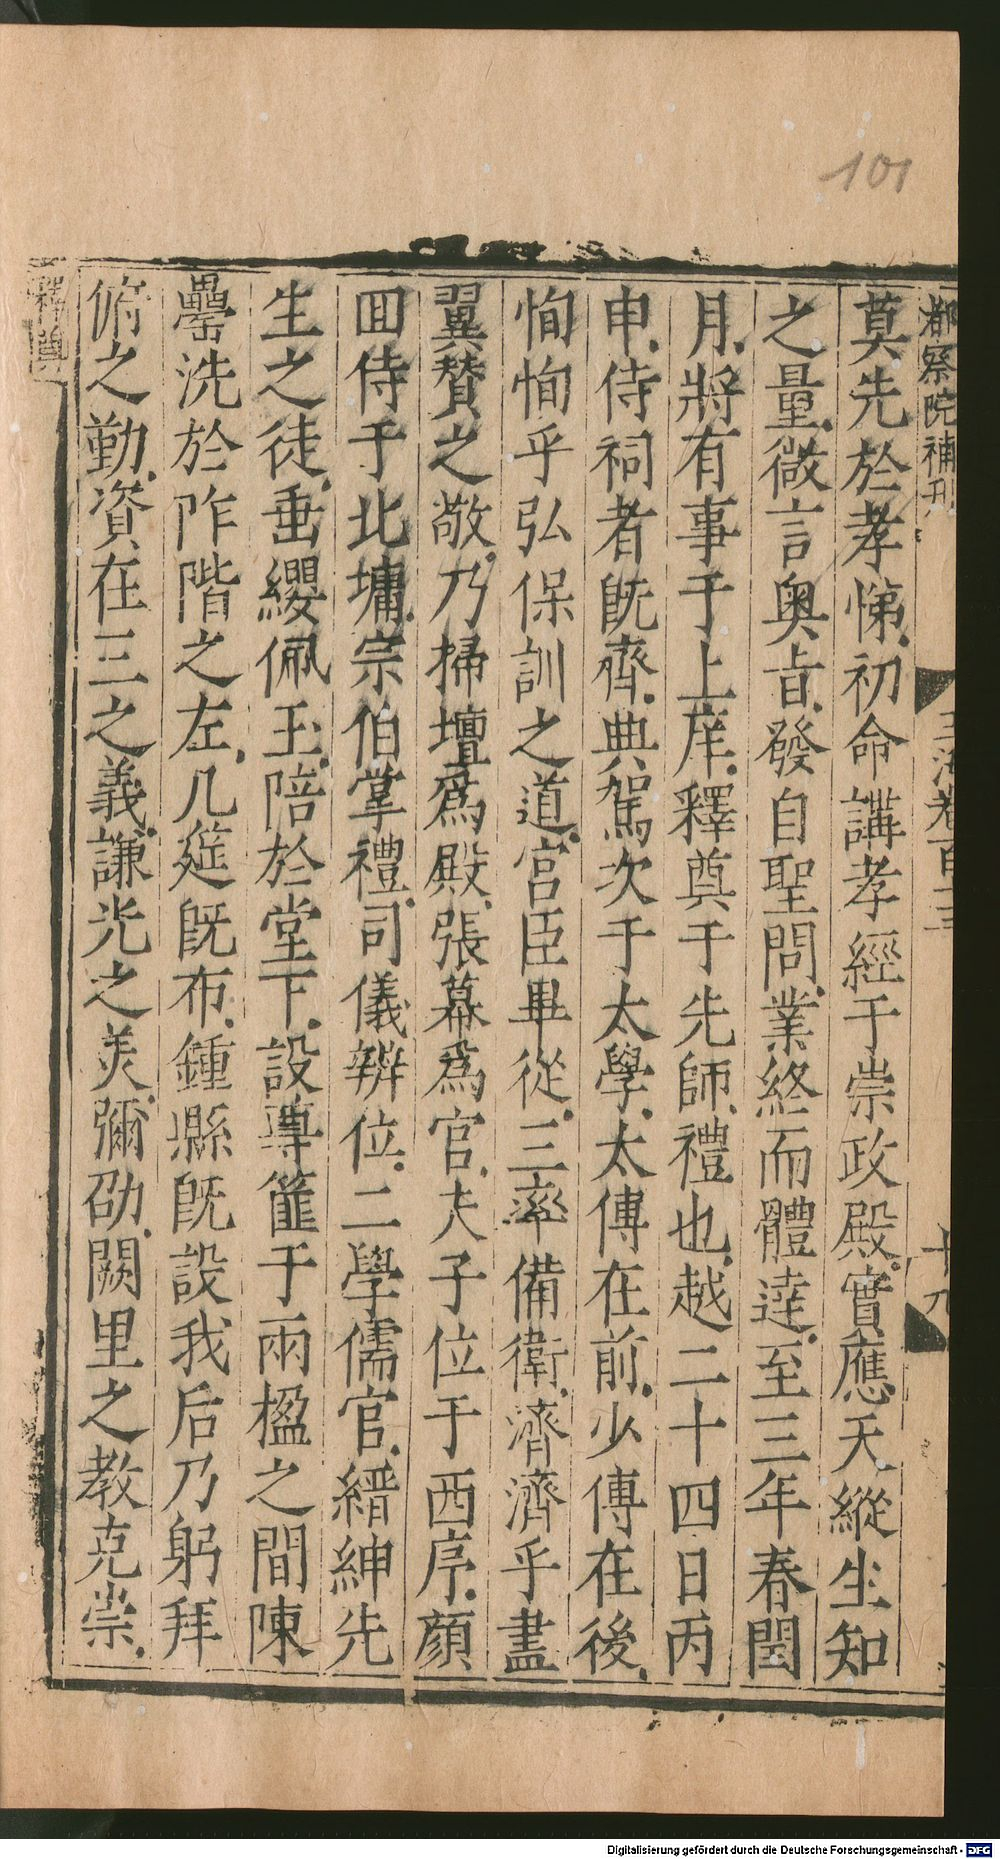 101
都察院補刊
玉海卷百十三
十九
莫先於孝悌初命講孝經于崇政殿實應天縱生知
之量微言奥㫖發自聖問業終而體達至三年春閏
月將有事于上庠釋奠于先師禮也越二十四日丙
申侍祠者既齊典駕次于太學太傅在前少傅在後
恂恂乎弘保訓之道宫臣畢從三率備衛濟濟乎肅
翼賛之敬乃掃壇爲殿張幕爲宫夫子位于西序顔
回侍于北墉宗伯掌禮司儀辨位二學儒官縉紳先
生之徒垂纓佩玉陪於堂下設尊篚于兩楹之間陳
罍洗於阼階之左几筵既布鍾縣既設我后乃躬拜
俯之勤資在三之義謙光之美彌劭闕里之教克崇
釋奠
Digitalisierung gefördert durch die Deutsche Forschungsgemeinschaft - DFG